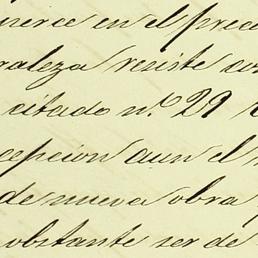 en el prec
raleza resiste
citado n.º 29
cepcion aun el
de nueva obra
obstante ser de